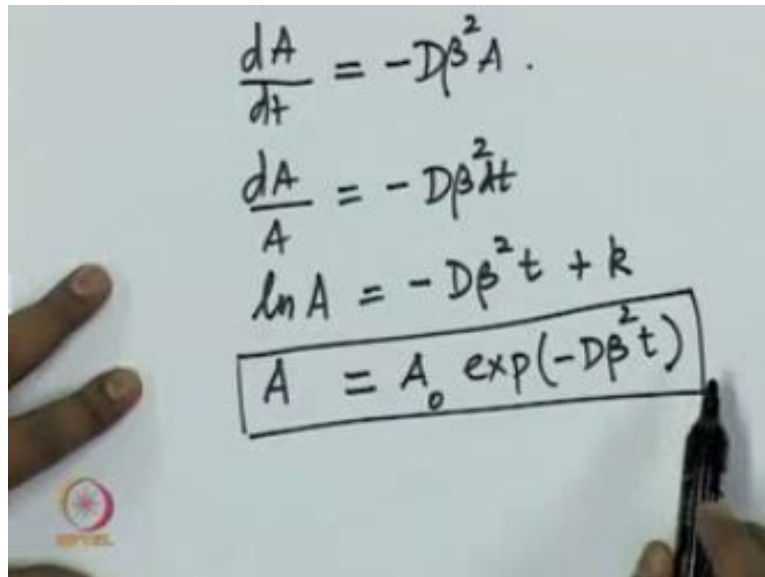 dA/dt = -Dβ²A.
dA/A = -Dβ²dt
ln A = -Dβ²t + k
A = A₀ exp(-Dβ²t)
NPTEL